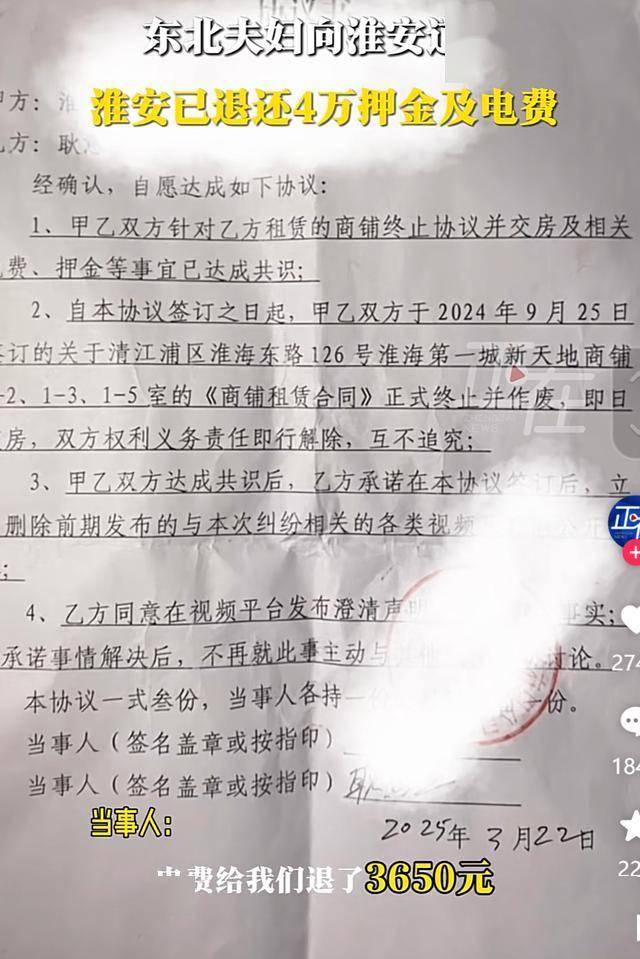 东北夫妇向淮安
淮安已退还4万押金及电费
方：淮
方：耿
经确认，自愿达成如下协议：
1、甲乙双方针对乙方租赁的商铺终止协议并交房及相关
费、押金等事宜已达成共识；
2、自本协议签订之日起，甲乙双方于2024年9月25日
订的关于清江浦区淮海东路126号淮海第一城新天地商铺
-2、1-3、1-5室的《商铺租赁合同》正式终止并作废，即日
房，双方权利义务责任即行解除，互不追究；
3、甲乙双方达成共识后，乙方承诺在本协议签订后，立
删除前期发布的与本次纠纷相关的各类视频
；
4、乙方同意在视频平台发布澄清声明 事实；
承诺事情解决后，不再就此事主动与 讨论。
本协议一式叁份，当事人各持一份 份。
当事人（签名盖章或按指印）
当事人（签名盖章或按指印）
当事人：
2025年3月22日
费给我们退了3650元
正在
NEWS
274
184
22